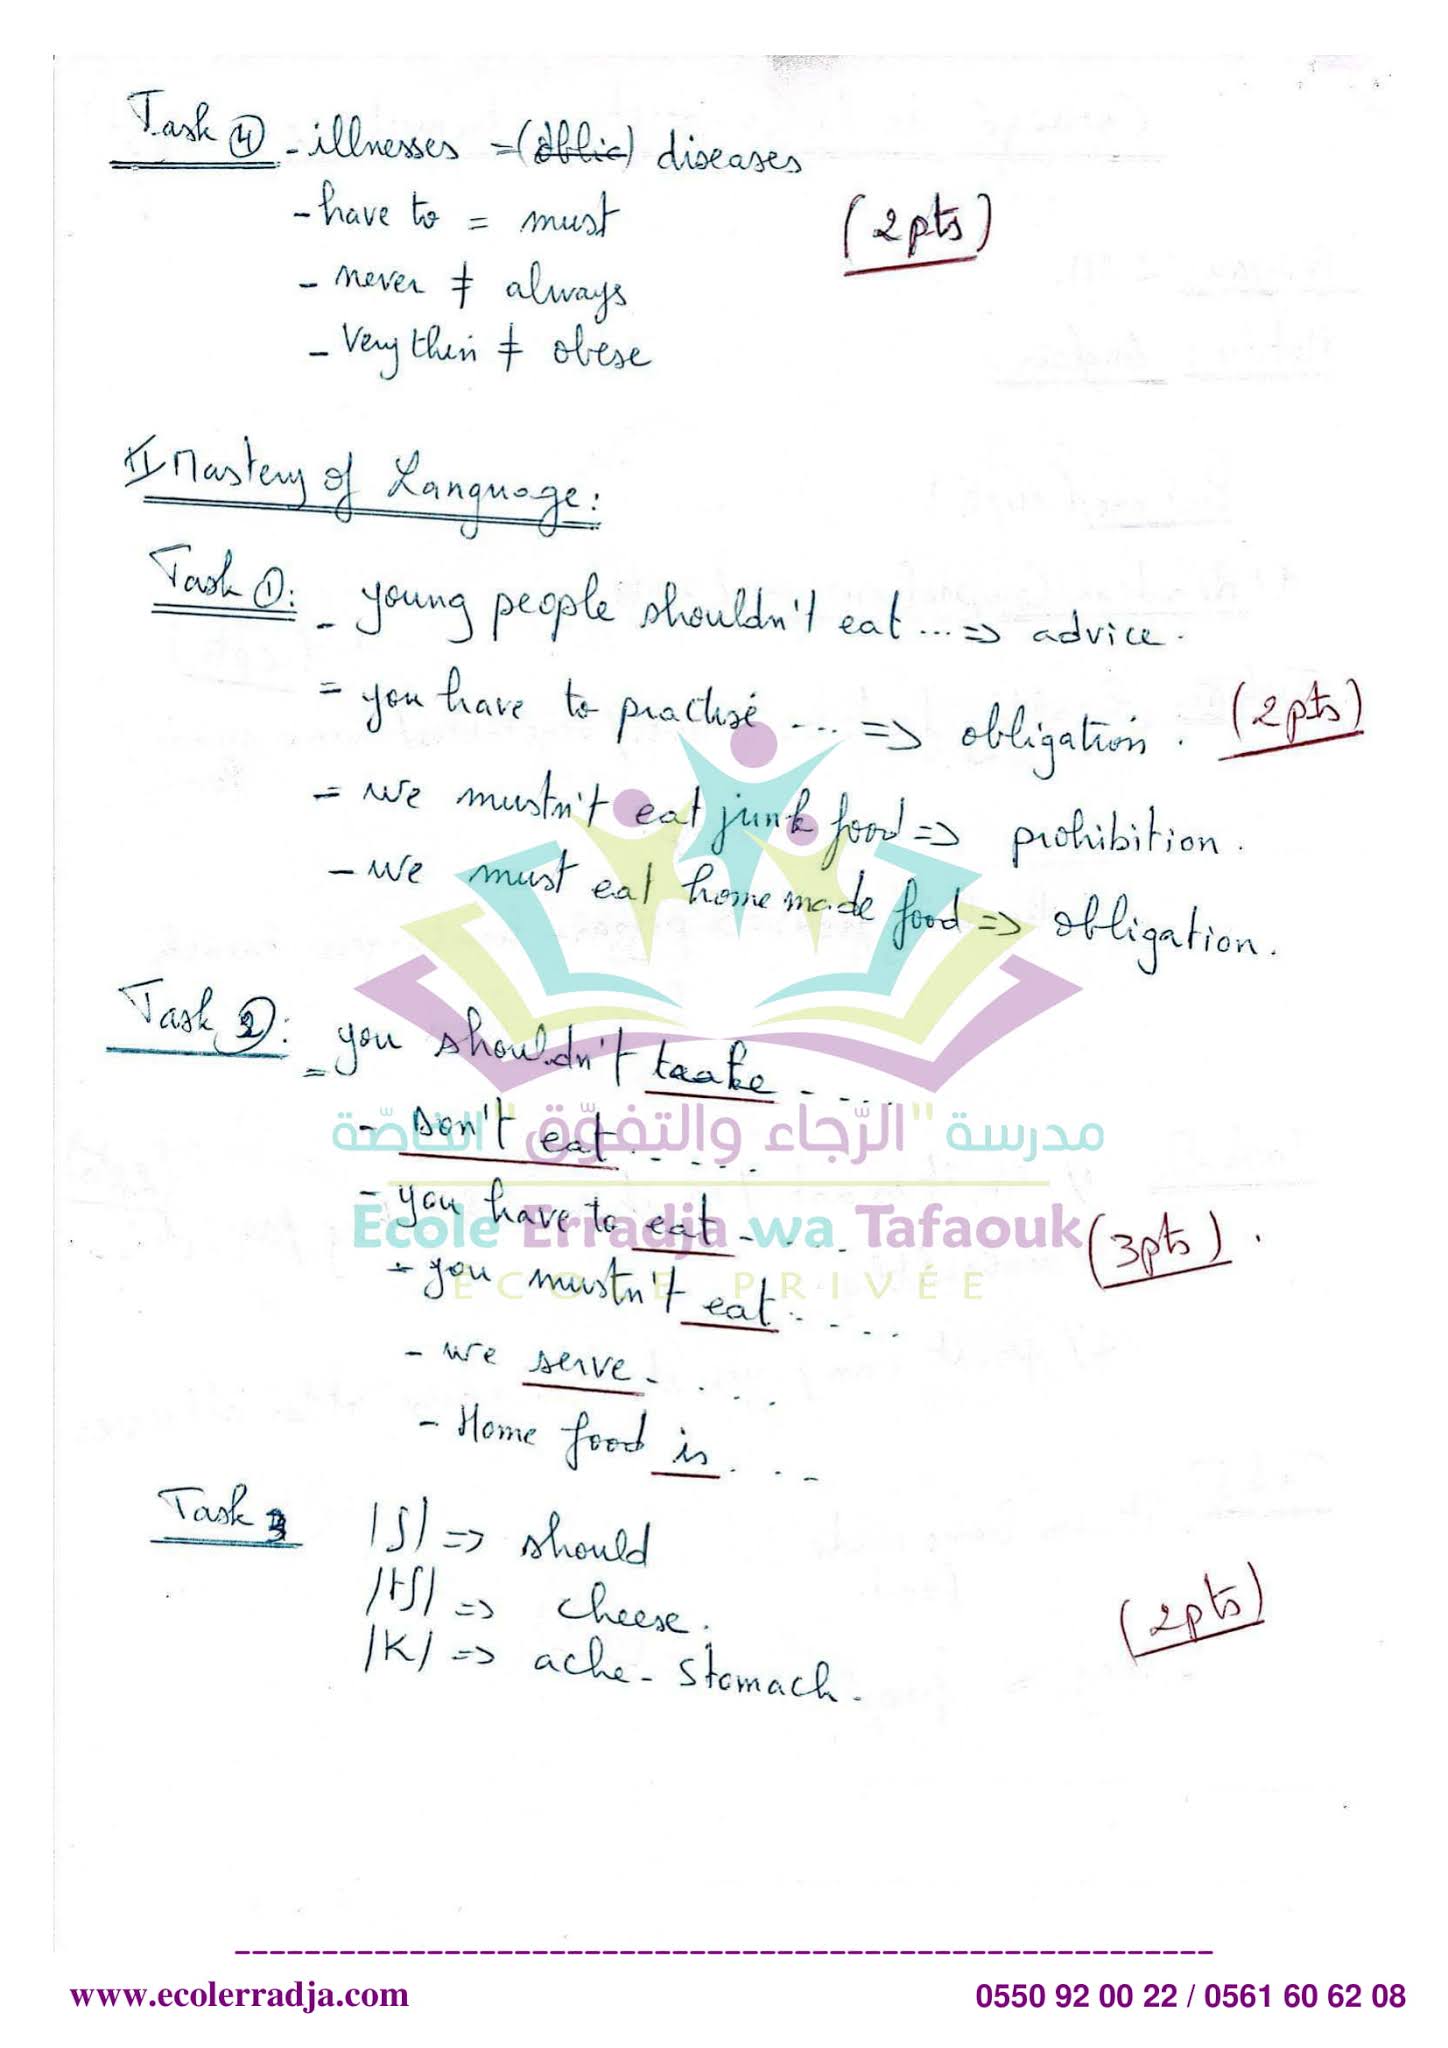 Task 4 - illnesses = (oblic) diseases
- have to = must
(2pts)
- never ≠ always
- Very thin ≠ obese
II Mastery of Language:
Task 1: - young people shouldn't eat ... => advice.
= you have to practise ... => obligation. (2pts)
= we mustn't eat junk food => prohibition.
- we must eat home made food => obligation.
Task 2: = you shouldn't take .....
مدرسة "الرّجاء والتفوّق" الخاصّة
- Don't eat .....
- you have to eat .....
Ecole Erradja wa Tafaouk
(3pts).
- you mustn't eat .....
ECOLE PRIVÉE
- we serve .....
- Home food is ....
Task 3 /ʃ/ => should
/tʃ/ => cheese.
(2pts)
/K/ => ache - stomach.
www.ecolerradja.com 0550 92 00 22 / 0561 60 62 08